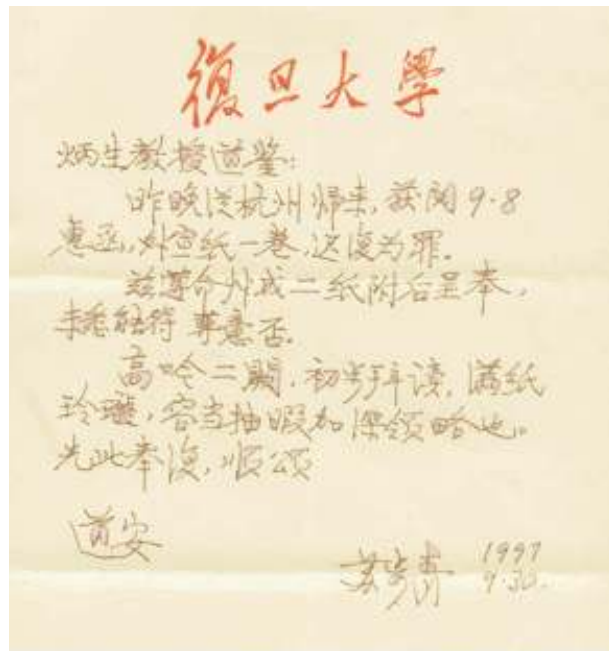 復旦大學
炳生教授道鉴:
昨晚从杭州归来,获阅9·8
惠函,外宣纸一卷,迟复为罪。
兹遵命 成二纸附后呈奉,
未悉能符 尊意否。
高吟二阕,初步拜读,满纸
玲珑,容当抽暇加深领略也。
先此奉复,顺颂
道安
苏步青 1997
9.30.